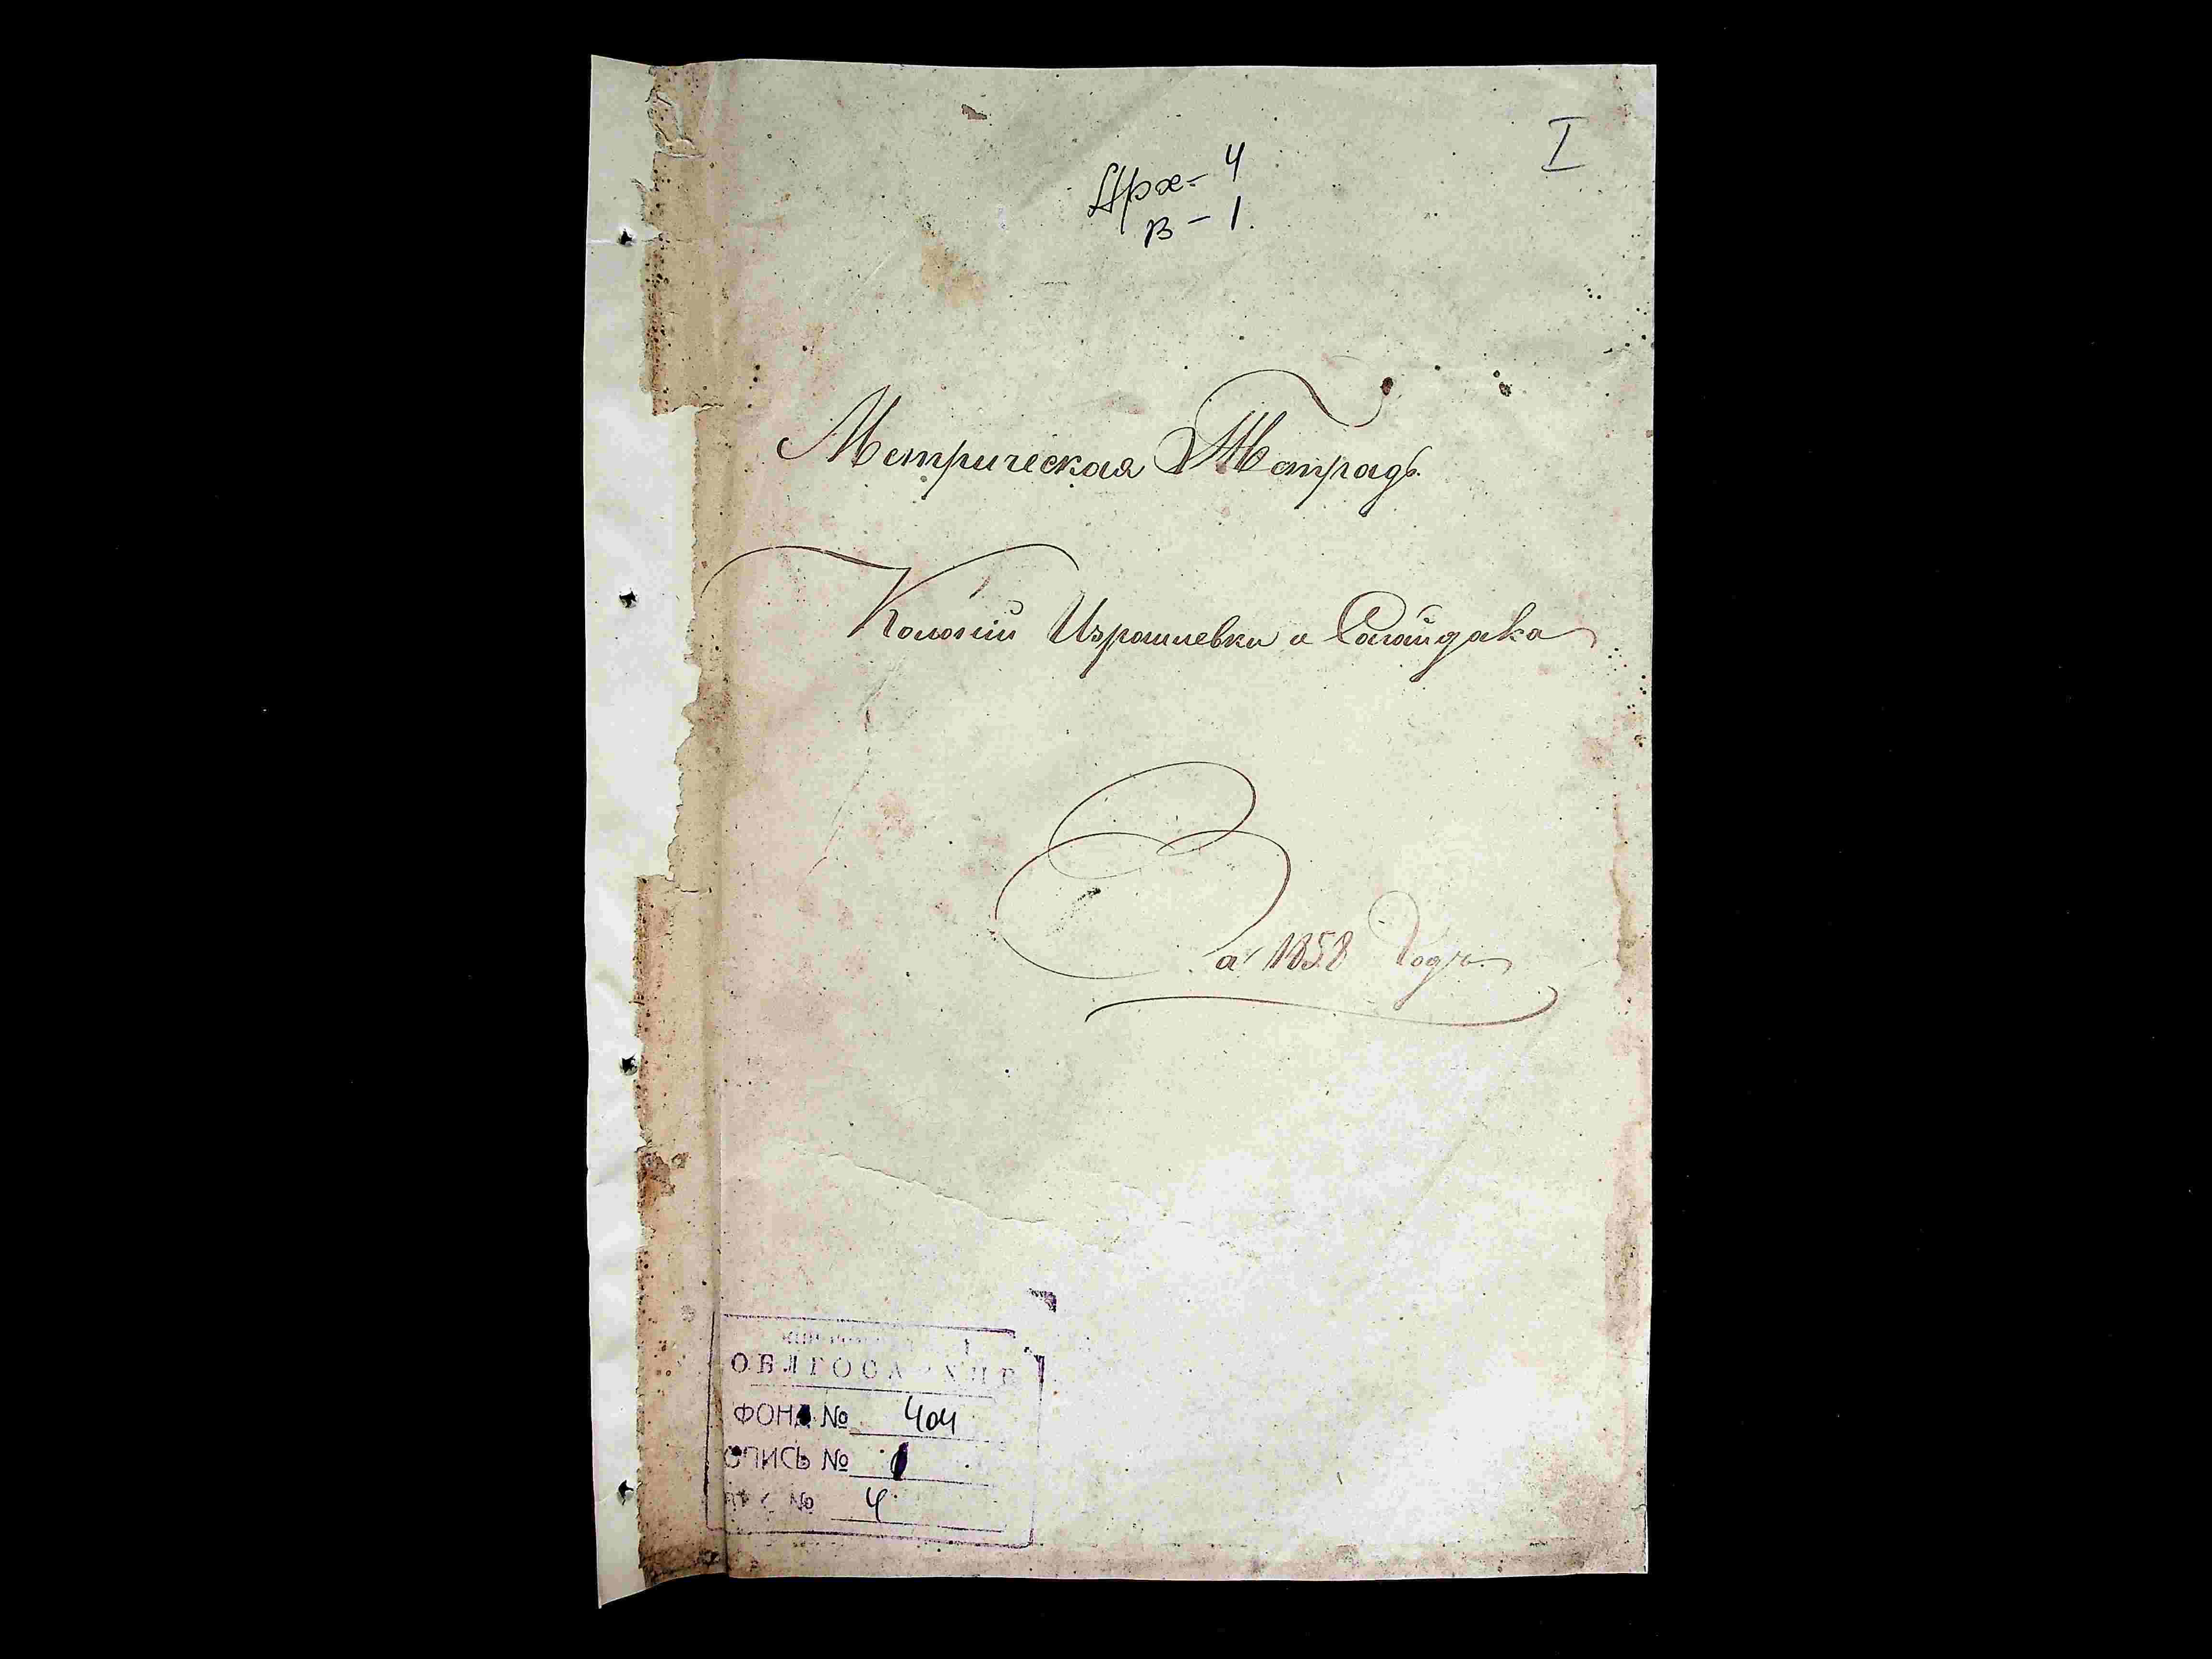 I
Арх- 4
В - 1.
Метрическая Тетрадь
Колоній Израилевки и Сагайдака
За 1858 Годъ
ОБЛГОСАРХИВ
ФОНД № 404
ОПИСЬ № 1
№ 4